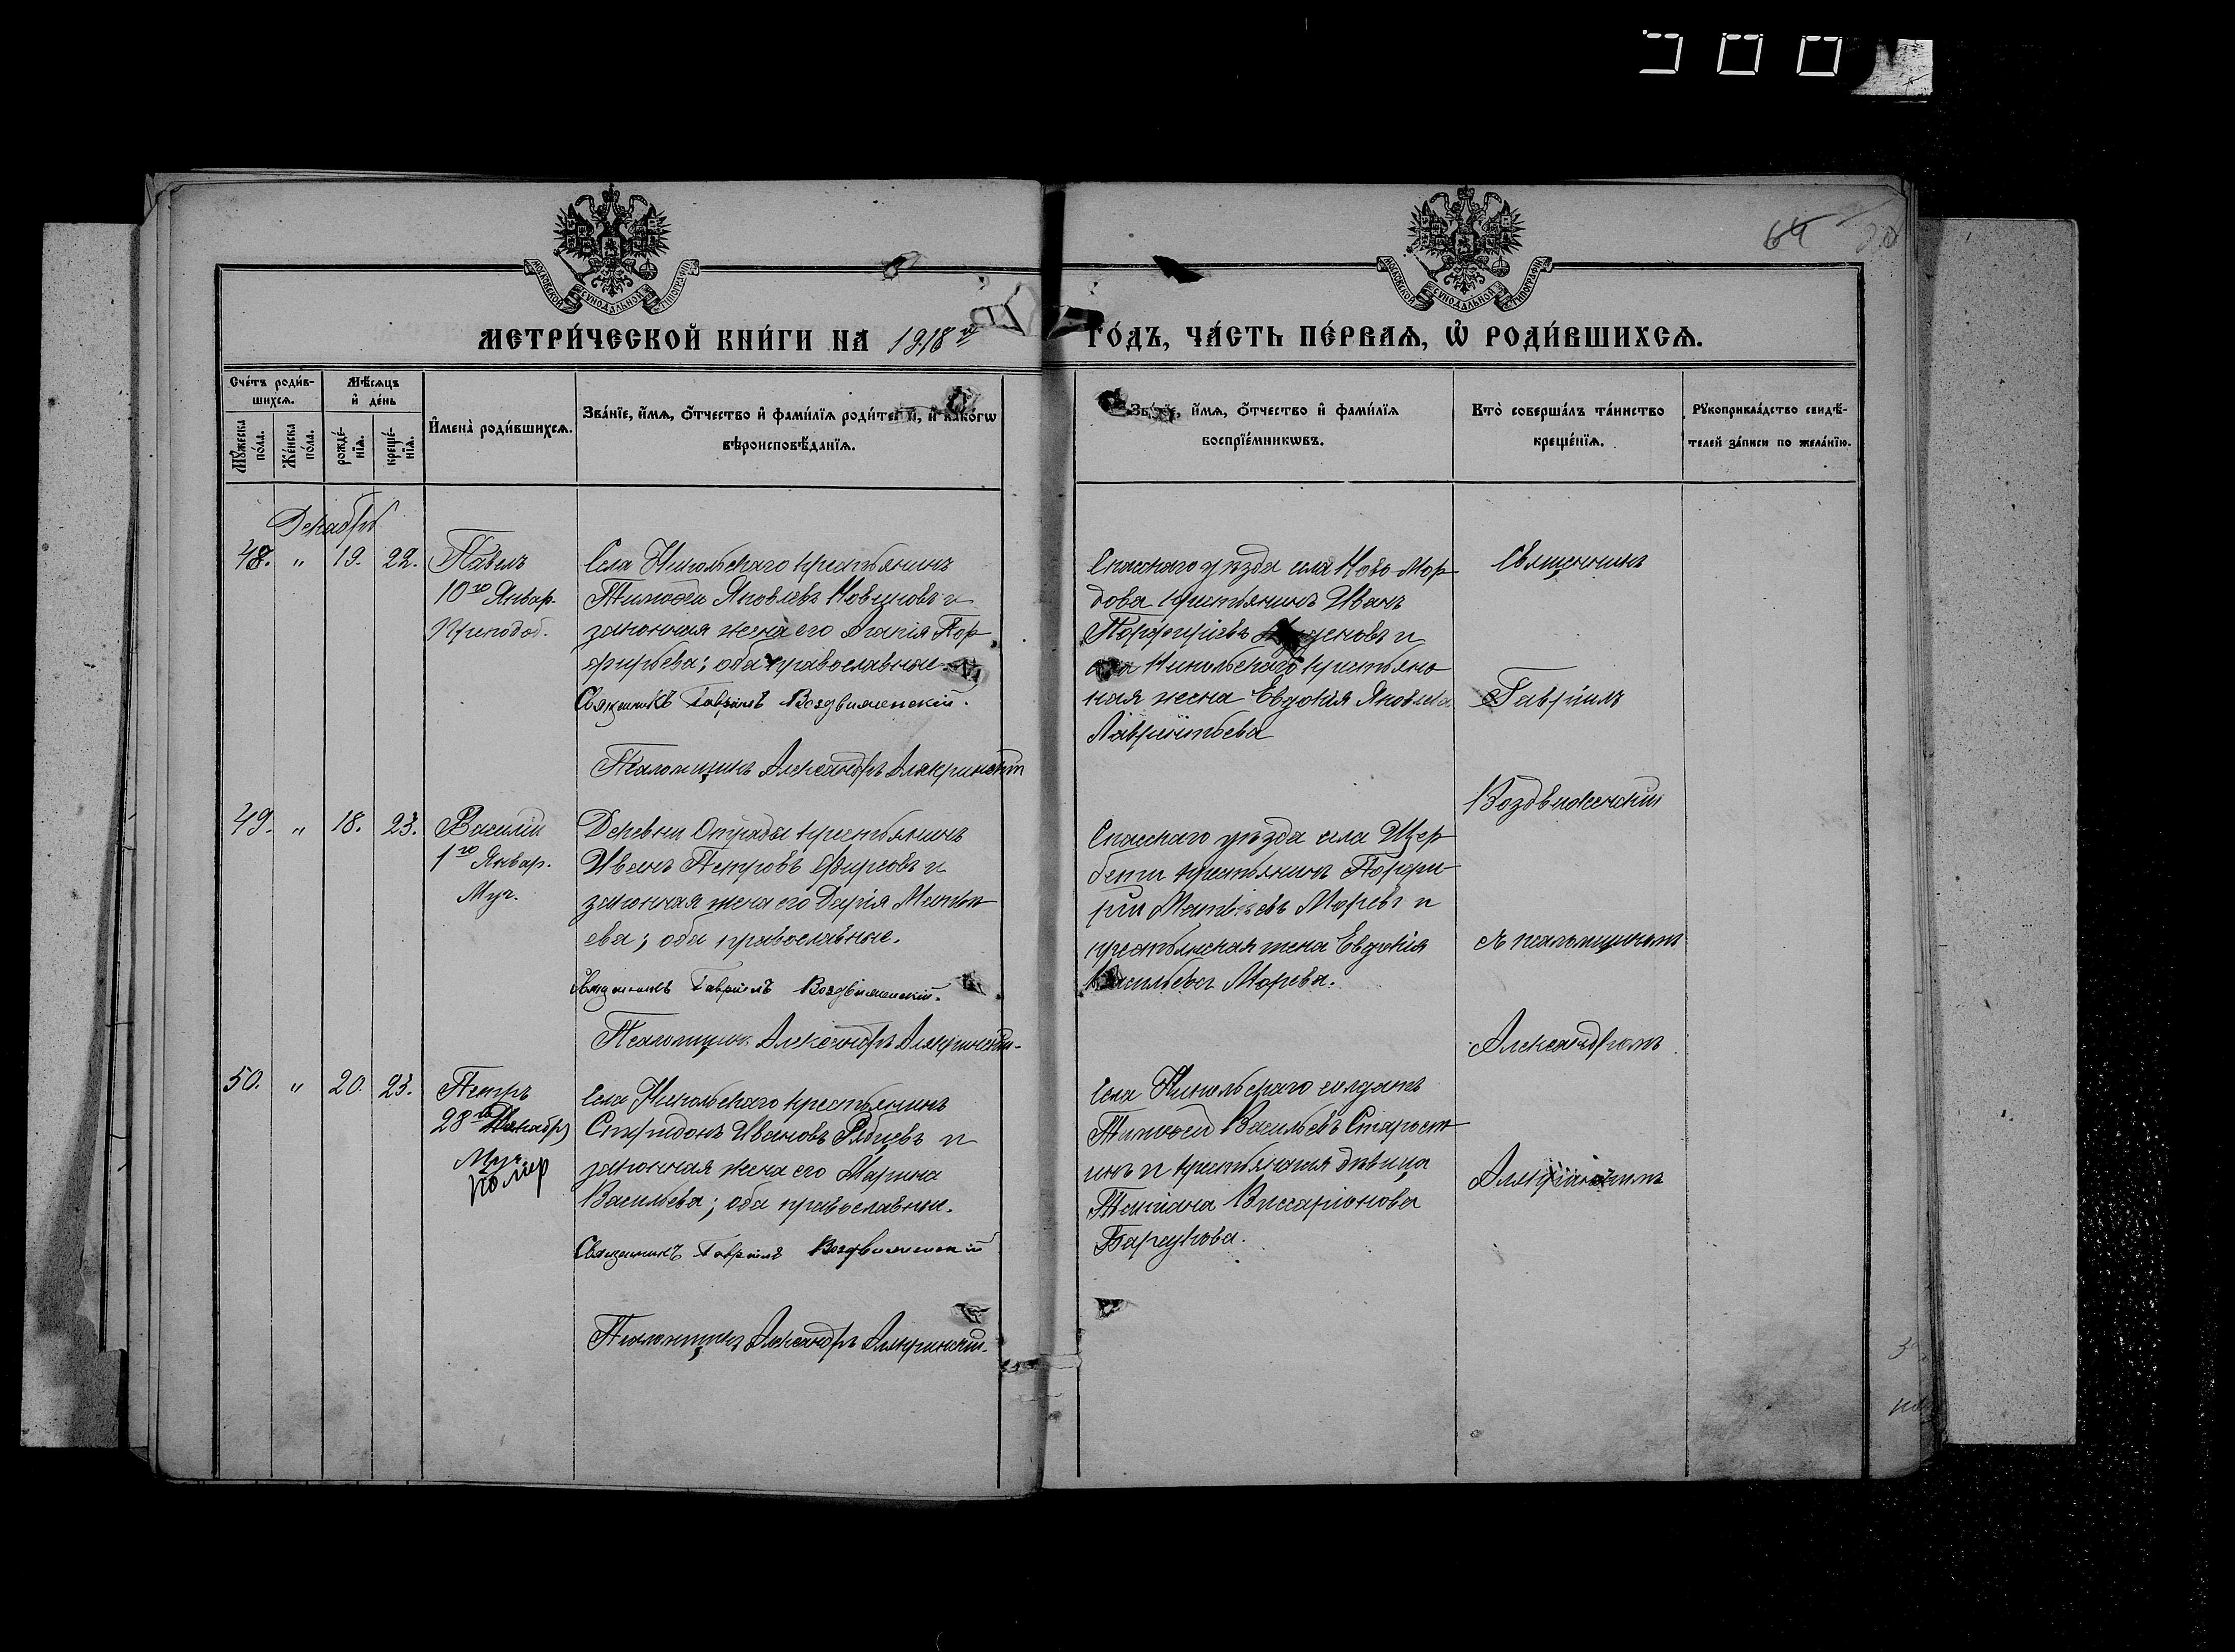 64
МОСКОВСКОЙ СѴНОДАЛЬНОЙ ТИПОГРАФІИ
МОСКОВСКОЙ СѴНОДАЛЬНОЙ ТИПОГРАФІИ
МЕТРИ́ЧЕСКОЙ КНИ́ГИ НА 1918 й
ГО́ДЪ, ЧА́СТЬ ПЕ́РВАѦ, Ѡ҆ РОДИ́ВШИХСѦ.
Сче́тъ роди́в-
шихсѧ.
Мꙋ́жеска по́ла.
Же́нска по́ла.
Мѣ́сѧцъ
и҆ де́нь
рожде́-
нїѧ.
креще́-
нїѧ.
И҆мена̀ роди́вшихсѧ.
Зва́нїе, и҆́мѧ, ѻ҆́тчество и҆ фами́лїѧ роди́телей, и҆ како́гѡ
вѣроисповѣ́данїѧ.
Зва́нїе, и҆́мѧ, ѻ҆́тчество и҆ фами́лїѧ
воспрїе́мникѡвъ.
Кто̀ соверша́лъ та́инство
креще́нїѧ.
Рꙋкоприкла́дство свидѣ́-
телей за́писи по жела́нїю.
Декабрь
48. " 19. 22.
Павелъ
10го Январ.
Преподоб.
Села Никольскаго крестьянинъ
Тимофей Яковлевъ Новиковъ и
законная жена его Агапія Пор
фирьева; оба православные
Священникъ Гавріилъ Воздвиженскій.
Псаломщикъ Александръ Алякринскій
Спасскаго уѣзда села Ново Мор
дова крестьянинъ Иванъ
Порфиріевъ и
села Никольскаго крестьянс
кая жена Евдокія Яковлева
Лаврентьева
49. " 18. 23.
Василій
1го Январ.
Муч.
Деревни Отрады крестьянинъ
Иванъ Петровъ Фирсовъ и
законная жена его Дарія Матвѣ
ева; оба православные.
Священникъ Гавріилъ Воздвиженскій.
Псаломщикъ Александръ Алякринскій.
Спасскаго уѣзда села Щер
бети крестьянинъ Порфи-
рій Матвѣевъ Моревъ и
крестьянская жена Евдокія
Васильева Морева.
50. " 20. 23.
Петръ
28го Декабр
Муч.
Села Никольскаго крестьянинъ
Спиридонъ Ивановъ Рябцевъ и
законная жена его Марина
Васильева; оба православные.
Священникъ Гавріилъ Воздвиженскій
Псаломщикъ Александръ Алякринскій.
Села Никольскаго солдатъ
Тимофей Васильевъ Старост
инъ и крестьянская дѣвица
Татіана Виссаріонова
Барсукова.
Священникъ
Гавріилъ
Воздвиженскій
съ псаломщикомъ
Александромъ
Алякринскимъ